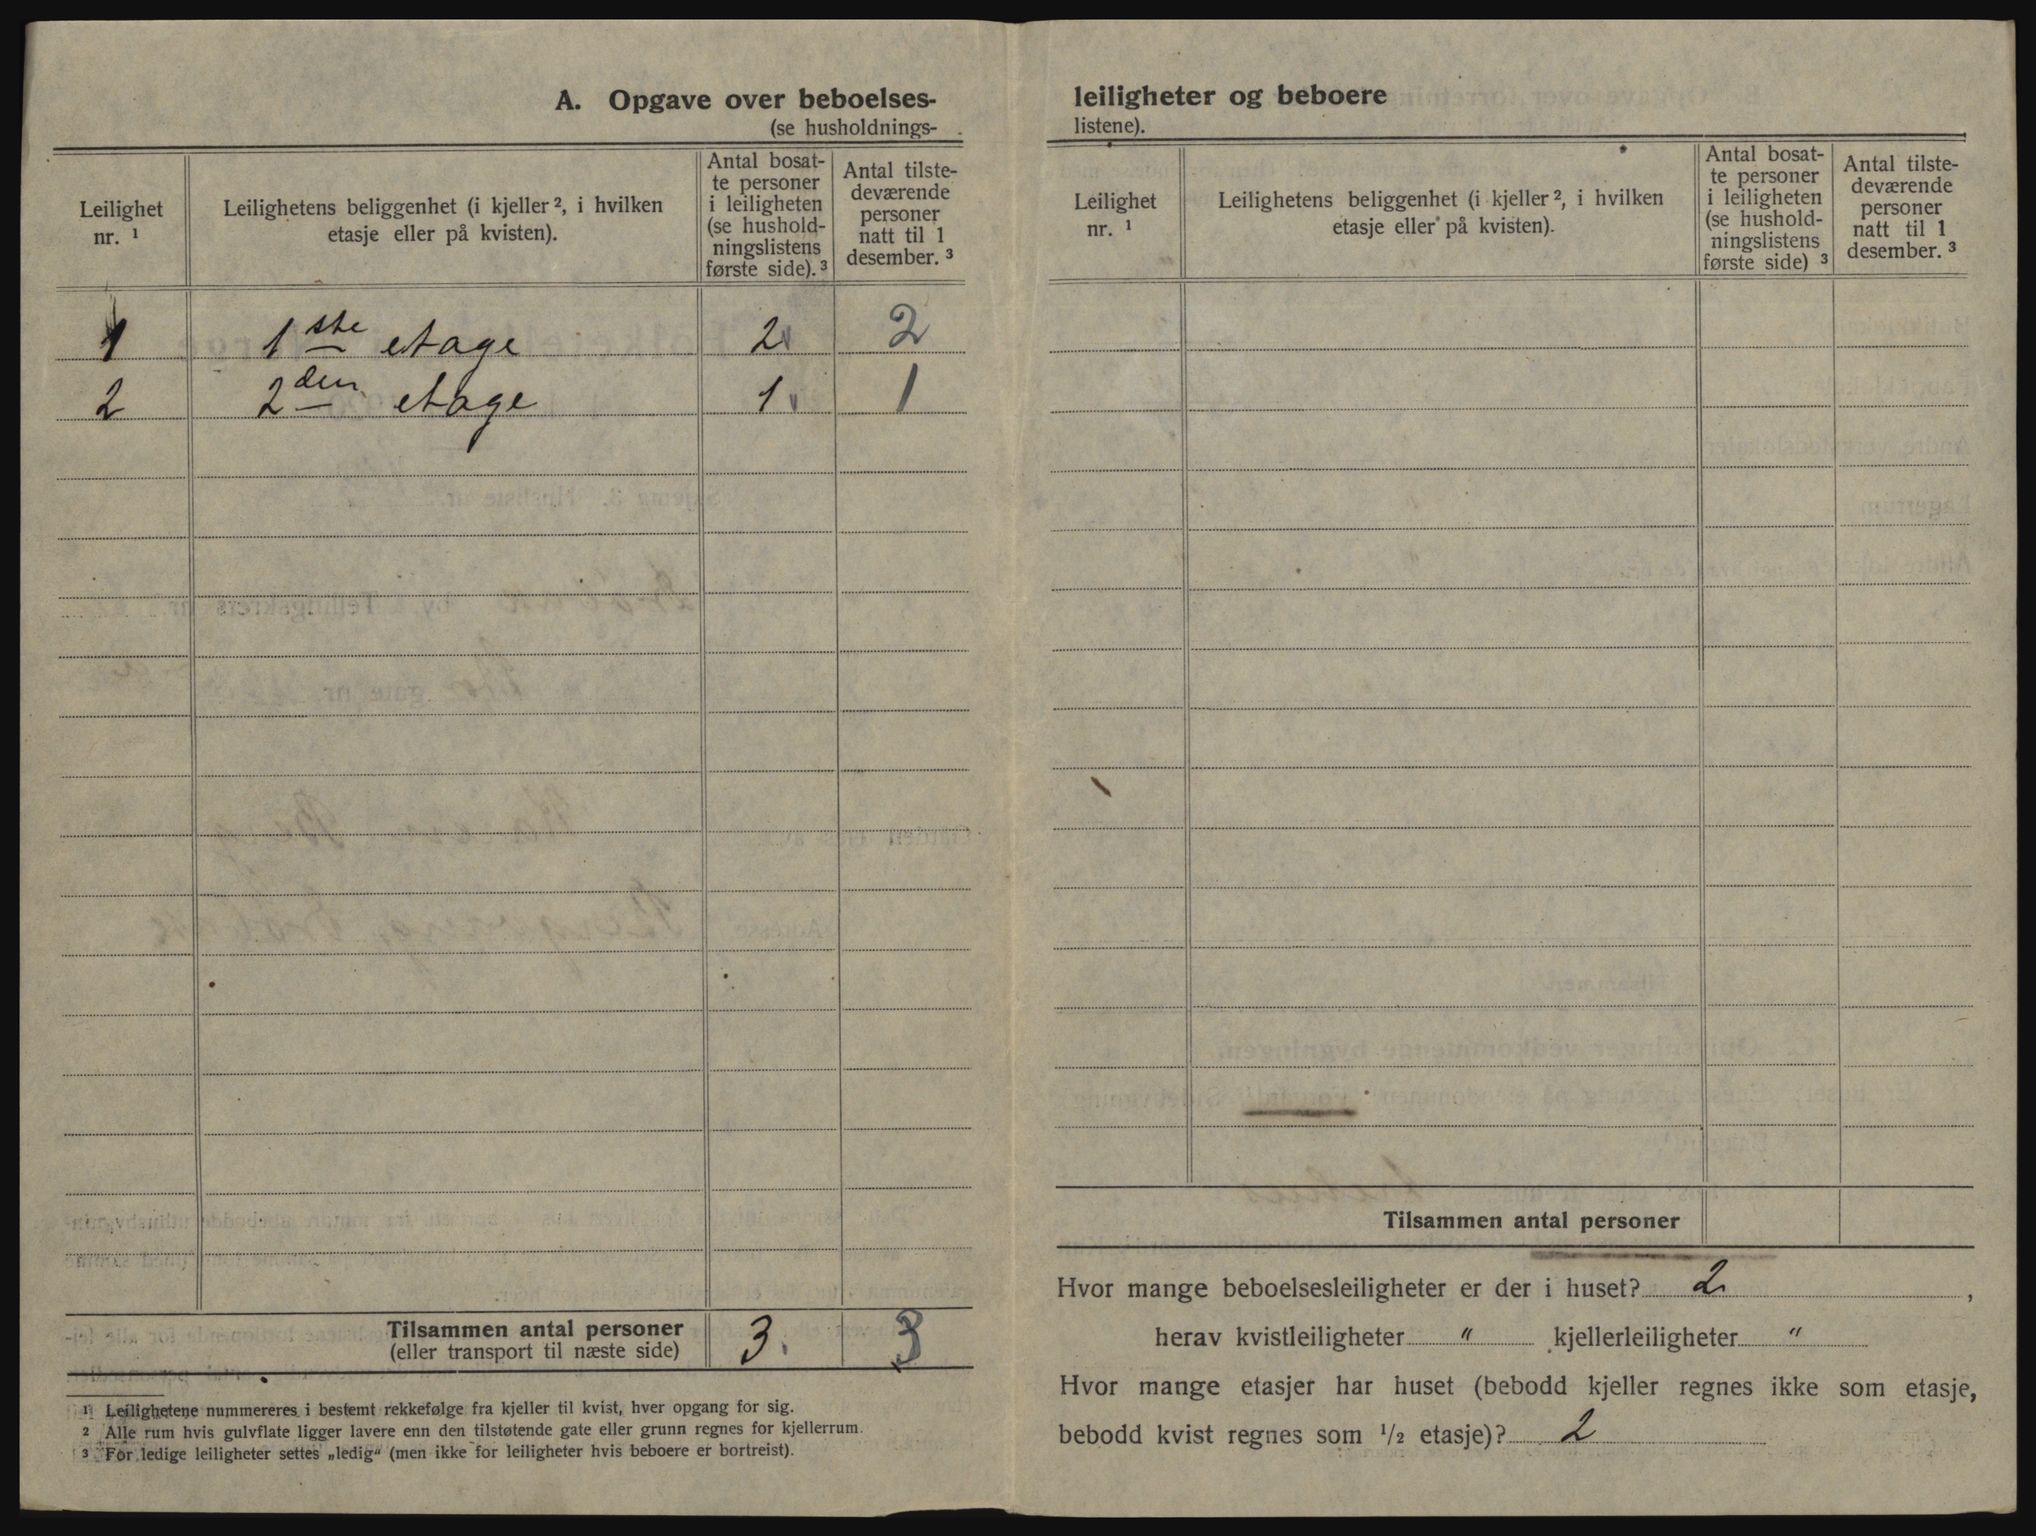 A. Opgave over beboelses-
(se husholdnings-
Leilighet
nr. ¹
Leilighetens beliggenhet (i kjeller ², i hvilken
etasje eller på kvisten).
Antal bosat-
te personer
i leiligheten
(se hushold-
ningslistens
første side). ³
Antal tilste-
deværende
personer
natt til 1
desember. ³
1 1ste etage 2 2
2 2den etage 1 1
Tilsammen antal personer
(eller transport til næste side)
3. 3
¹ Leilighetene nummereres i bestemt rekkefølge fra kjeller til kvist, hver opgang for sig.
² Alle rum hvis gulvflate ligger lavere enn den tilstøtende gate eller grunn regnes for kjellerrum.
³ For ledige leiligheter settes „ledig“ (men ikke for leiligheter hvis beboere er bortreist).
leiligheter og beboere
listene).
Leilighet
nr. ¹
Leilighetens beliggenhet (i kjeller ², i hvilken
etasje eller på kvisten).
Antal bosat-
te personer
i leiligheten
(se hushold-
ningslistens
første side) ³
Antal tilste-
deværende
personer
natt til 1
desember. ³
Tilsammen antal personer
Hvor mange beboelsesleiligheter er der i huset? 2 ,
herav kvistleiligheter " kjellerleiligheter "
Hvor mange etasjer har huset (bebodd kjeller regnes ikke som etasje,
bebodd kvist regnes som ½ etasje)? 2